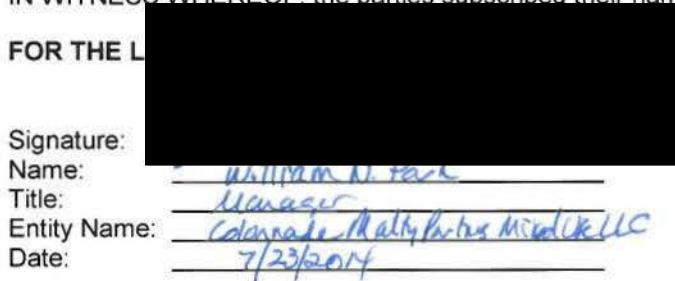 FOR THE L
Signature:
Name: William N. Park
Title: Manager
Entity Name: Colonnade Realty Partners Mixed Use LLC
Date: 7/23/2014